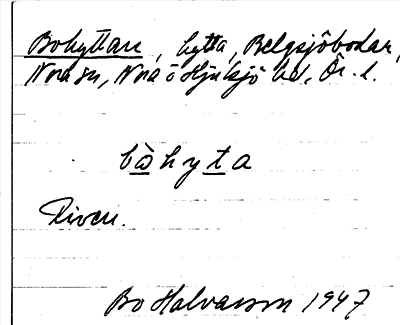 Bohyttan, hytta, Belgsjöbodar,
Nora sn, Nora o Hjulsjö bd, Ör. l.
bo̲̊hyt̲a
Riven.
Bo Halvarson 1947